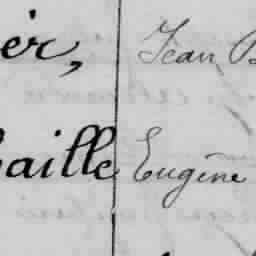 ier, Jean B
aille Eugène